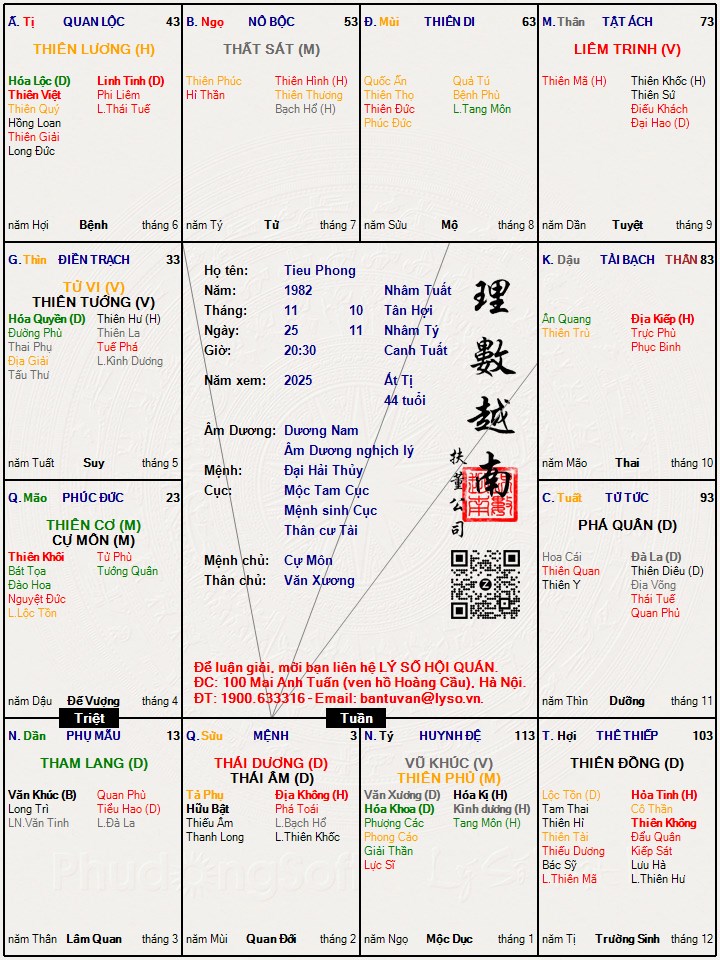 Ấ. Tị QUAN LỘC 43
THIÊN LƯƠNG (H)
Hóa Lộc (D) Linh Tinh (D)
Thiên Việt Phi Liêm
Thiên Quý L.Thái Tuế
Hồng Loan
Thiên Giải
Long Đức
năm Hợi Bệnh tháng 6
B. Ngọ NÔ BỘC 53
THẤT SÁT (M)
Thiên Phúc Thiên Hình (H)
Hỉ Thần Thiên Thương
Bạch Hổ (H)
năm Tý Tử tháng 7
Đ. Mùi THIÊN DI 63
Quốc Ấn Quả Tú
Thiên Thọ Bệnh Phù
Thiên Đức L.Tang Môn
Phúc Đức
năm Sửu Mộ tháng 8
M. Thân TẬT ÁCH 73
LIÊM TRINH (V)
Thiên Mã (H) Thiên Khốc (H)
Thiên Sứ
Điếu Khách
Đại Hao (D)
năm Dần Tuyệt tháng 9
G. Thìn ĐIỀN TRẠCH 33
TỬ VI (V)
THIÊN TƯỚNG (V)
Hóa Quyền (D) Thiên Hư (H)
Đường Phù Thiên La
Thai Phụ Tuế Phá
Địa Giải L.Kình Dương
Tấu Thư
năm Tuất Suy tháng 5
Họ tên: Tieu Phong
Năm: 1982 Nhâm Tuất
Tháng: 11 10 Tân Hợi
Ngày: 25 11 Nhâm Tý
Giờ: 20:30 Canh Tuất
Năm xem: 2025 Ất Tị
44 tuổi
Âm Dương: Dương Nam
Âm Dương nghịch lý
Mệnh: Đại Hải Thủy
Cục: Mộc Tam Cục
Mệnh sinh Cục
Thân cư Tài
Mệnh chủ: Cự Môn
Thân chủ: Văn Xương
理數越南
扶董公司
Để luận giải, mời bạn liên hệ LÝ SỐ HỘI QUÁN.
ĐC: 100 Mai Anh Tuấn (ven hồ Hoàng Cầu), Hà Nội.
ĐT: 1900.633316 - Email: bantuvan@lyso.vn.
K. Dậu TÀI BẠCH THÂN 83
Ân Quang Địa Kiếp (H)
Thiên Trù Trực Phù
Phục Binh
năm Mão Thai tháng 10
Q. Mão PHÚC ĐỨC 23
THIÊN CƠ (M)
CỰ MÔN (M)
Thiên Khôi Tử Phù
Bát Tọa Tướng Quân
Đào Hoa
Nguyệt Đức
L.Lộc Tồn
năm Dậu Đế Vượng tháng 4
C. Tuất TỬ TỨC 93
PHÁ QUÂN (D)
Hoa Cái Đà La (D)
Thiên Quan Thiên Diêu (D)
Thiên Y Địa Võng
Thái Tuế
Quan Phủ
năm Thìn Dưỡng tháng 11
Triệt Tuần
N. Dần PHỤ MẪU 13
THAM LANG (D)
Văn Khúc (B) Quan Phù
Long Trì Tiểu Hao (D)
LN.Văn Tinh L.Đà La
năm Thân Lâm Quan tháng 3
Q. Sửu MỆNH 3
THÁI DƯƠNG (D)
THÁI ÂM (D)
Tả Phụ Địa Không (H)
Hữu Bật Phá Toái
Thiếu Âm L.Bạch Hổ
Thanh Long L.Thiên Khốc
năm Mùi Quan Đới tháng 2
N. Tý HUYNH ĐỆ 113
VŨ KHÚC (V)
THIÊN PHỦ (M)
Văn Xương (D) Hóa Kị (H)
Hóa Khoa (D) Kình dương (H)
Phượng Các Tang Môn (H)
Phong Cáo
Giải Thần
Lực Sĩ
năm Ngọ Mộc Dục tháng 1
T. Hợi THÊ THIẾP 103
THIÊN ĐỒNG (D)
Lộc Tồn (D) Hỏa Tinh (H)
Tam Thai Cô Thần
Thiên Hỉ Thiên Không
Thiên Tài Đẩu Quân
Thiếu Dương Kiếp Sát
Bác Sỹ Lưu Hà
L.Thiên Mã L.Thiên Hư
năm Tị Trường Sinh tháng 12